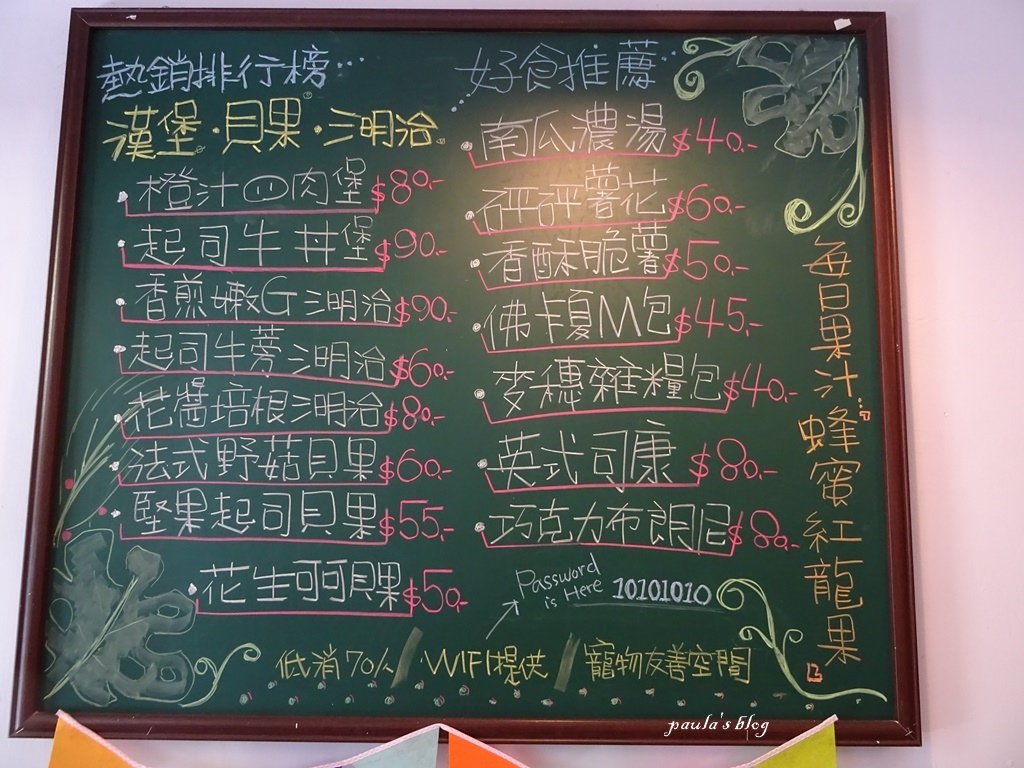 熱銷排行榜
漢堡・貝果・三明治
橙汁四肉堡 $80.-
起司牛丼堡 $90.-
香煎嫩G三明治 $90.-
起司牛蒡三明治 $60.-
花醬培根三明治 $80.-
法式野菇貝果 $60.-
堅果起司貝果 $55.-
花生可可貝果 $50.-
好食推薦
南瓜濃湯 $40.-
砰砰薯花 $60.-
香酥脆薯 $50.-
佛卡夏M包 $45.-
麥穗雜糧包 $40.-
英式司康 $80.-
巧克力布朗尼 $80.-
Password
is Here 10101010
每日果汁：蜂蜜紅龍果
低消70/人/WIFI提供/寵物友善空間
paula's blog